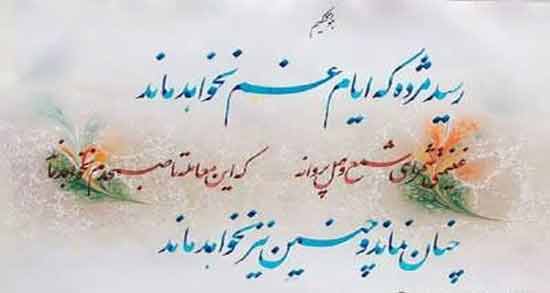 هو الحکیم
رسید مژده که ایام غم نخواهد ماند
غنیمتی شمر ای شمع وصل پروانه که این معامله تا صبحدم نخواهد ماند
چنان نماند و چنین نیز نخواهد ماند